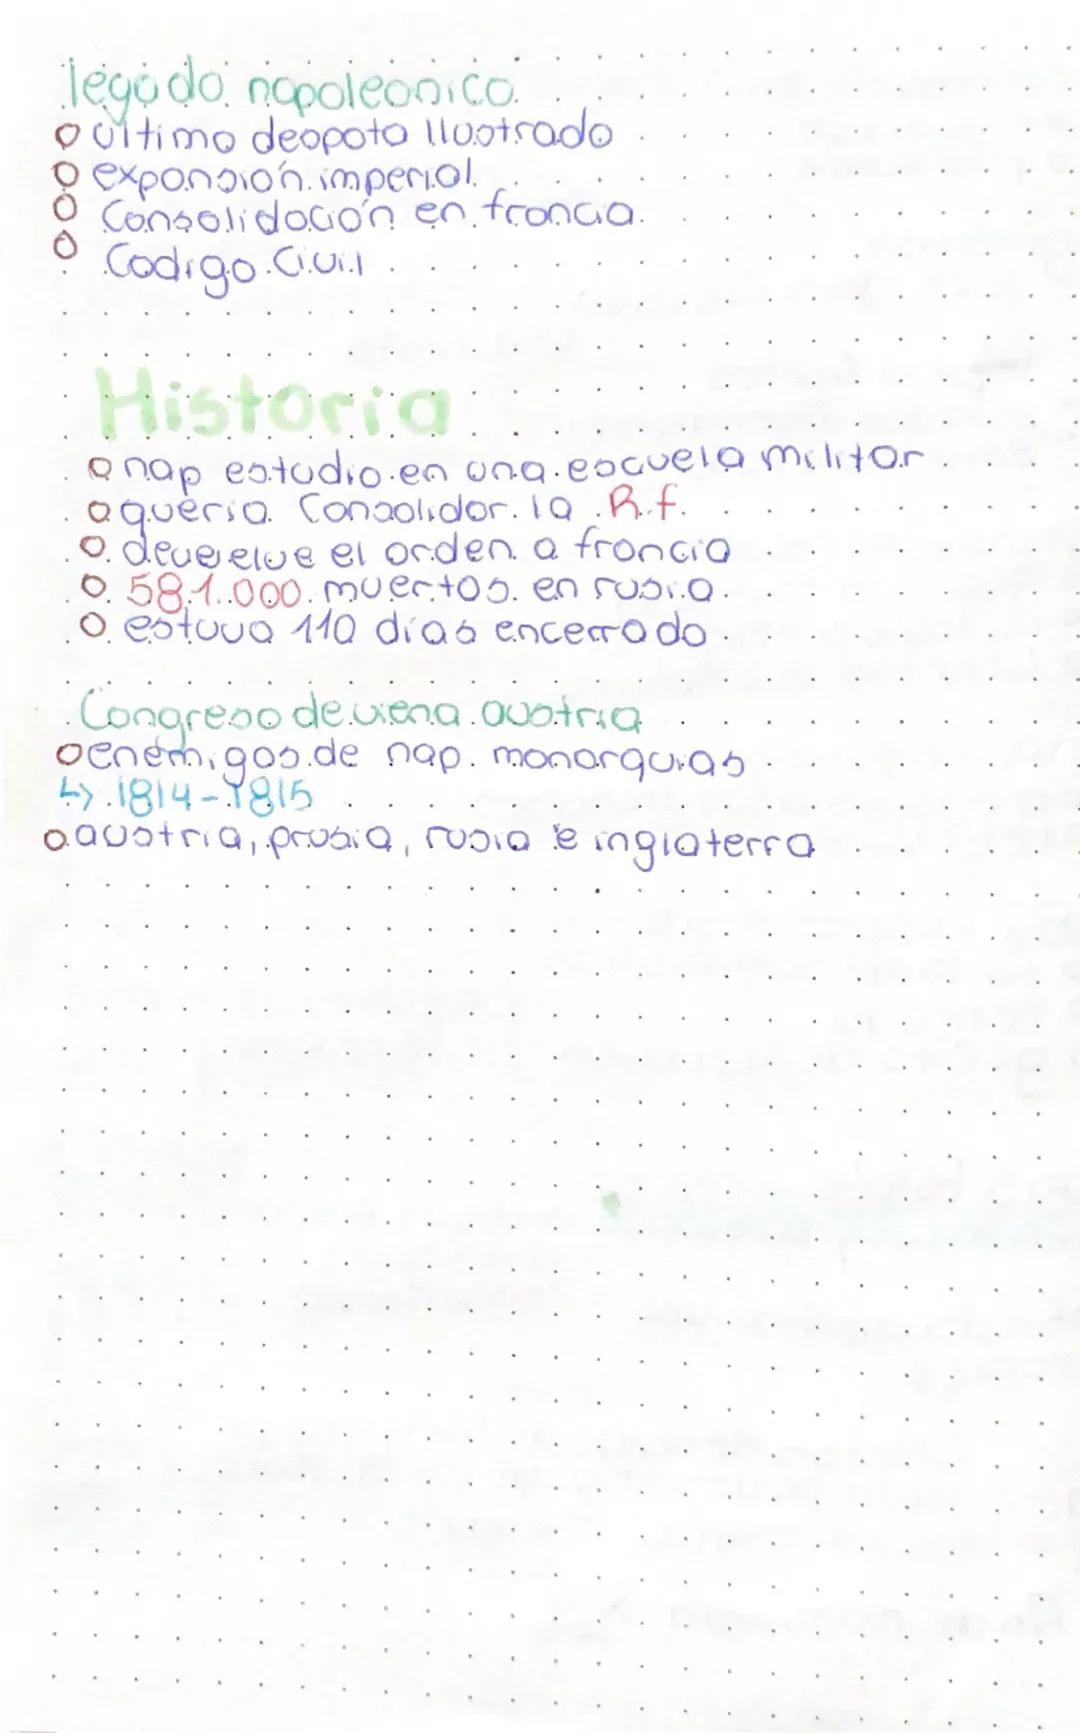 legado napoleonico.
o ultimo despota ilustrado
o expansión imperial.
o Consolidación en francia.
o Codigo Civil
Historia
o nap estudio en una escuela militar
o queria Consolidar la R.f.
o devuelve el orden a francia
o 581.000 muertos en rusia
o estuvo 110 días encerrado
Congreso de viena austria
o enemigos de nap. monarquias
↳ 1814-1815
o austria, prusia, rusia e inglaterra